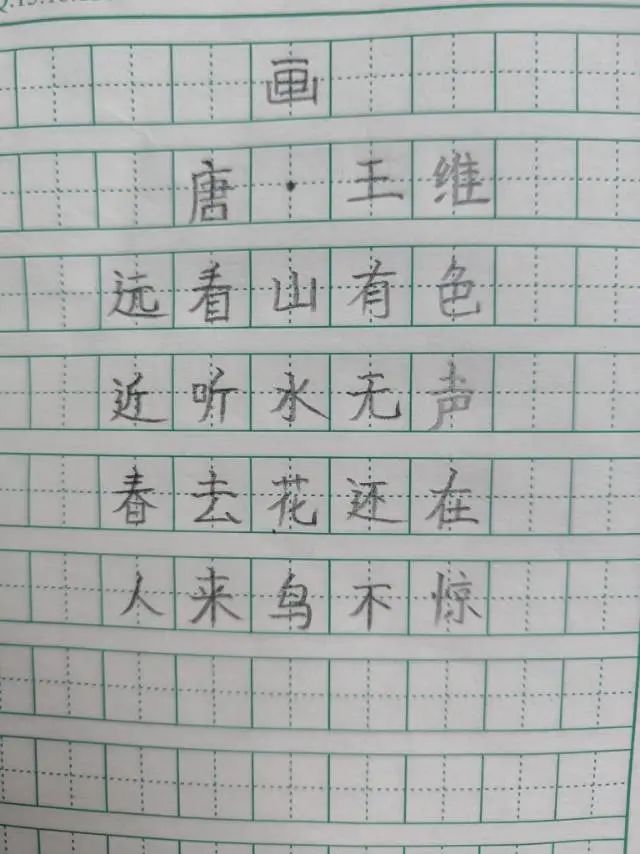 画
唐·王维
远看山有色
近听水无声
春去花还在
人来鸟不惊